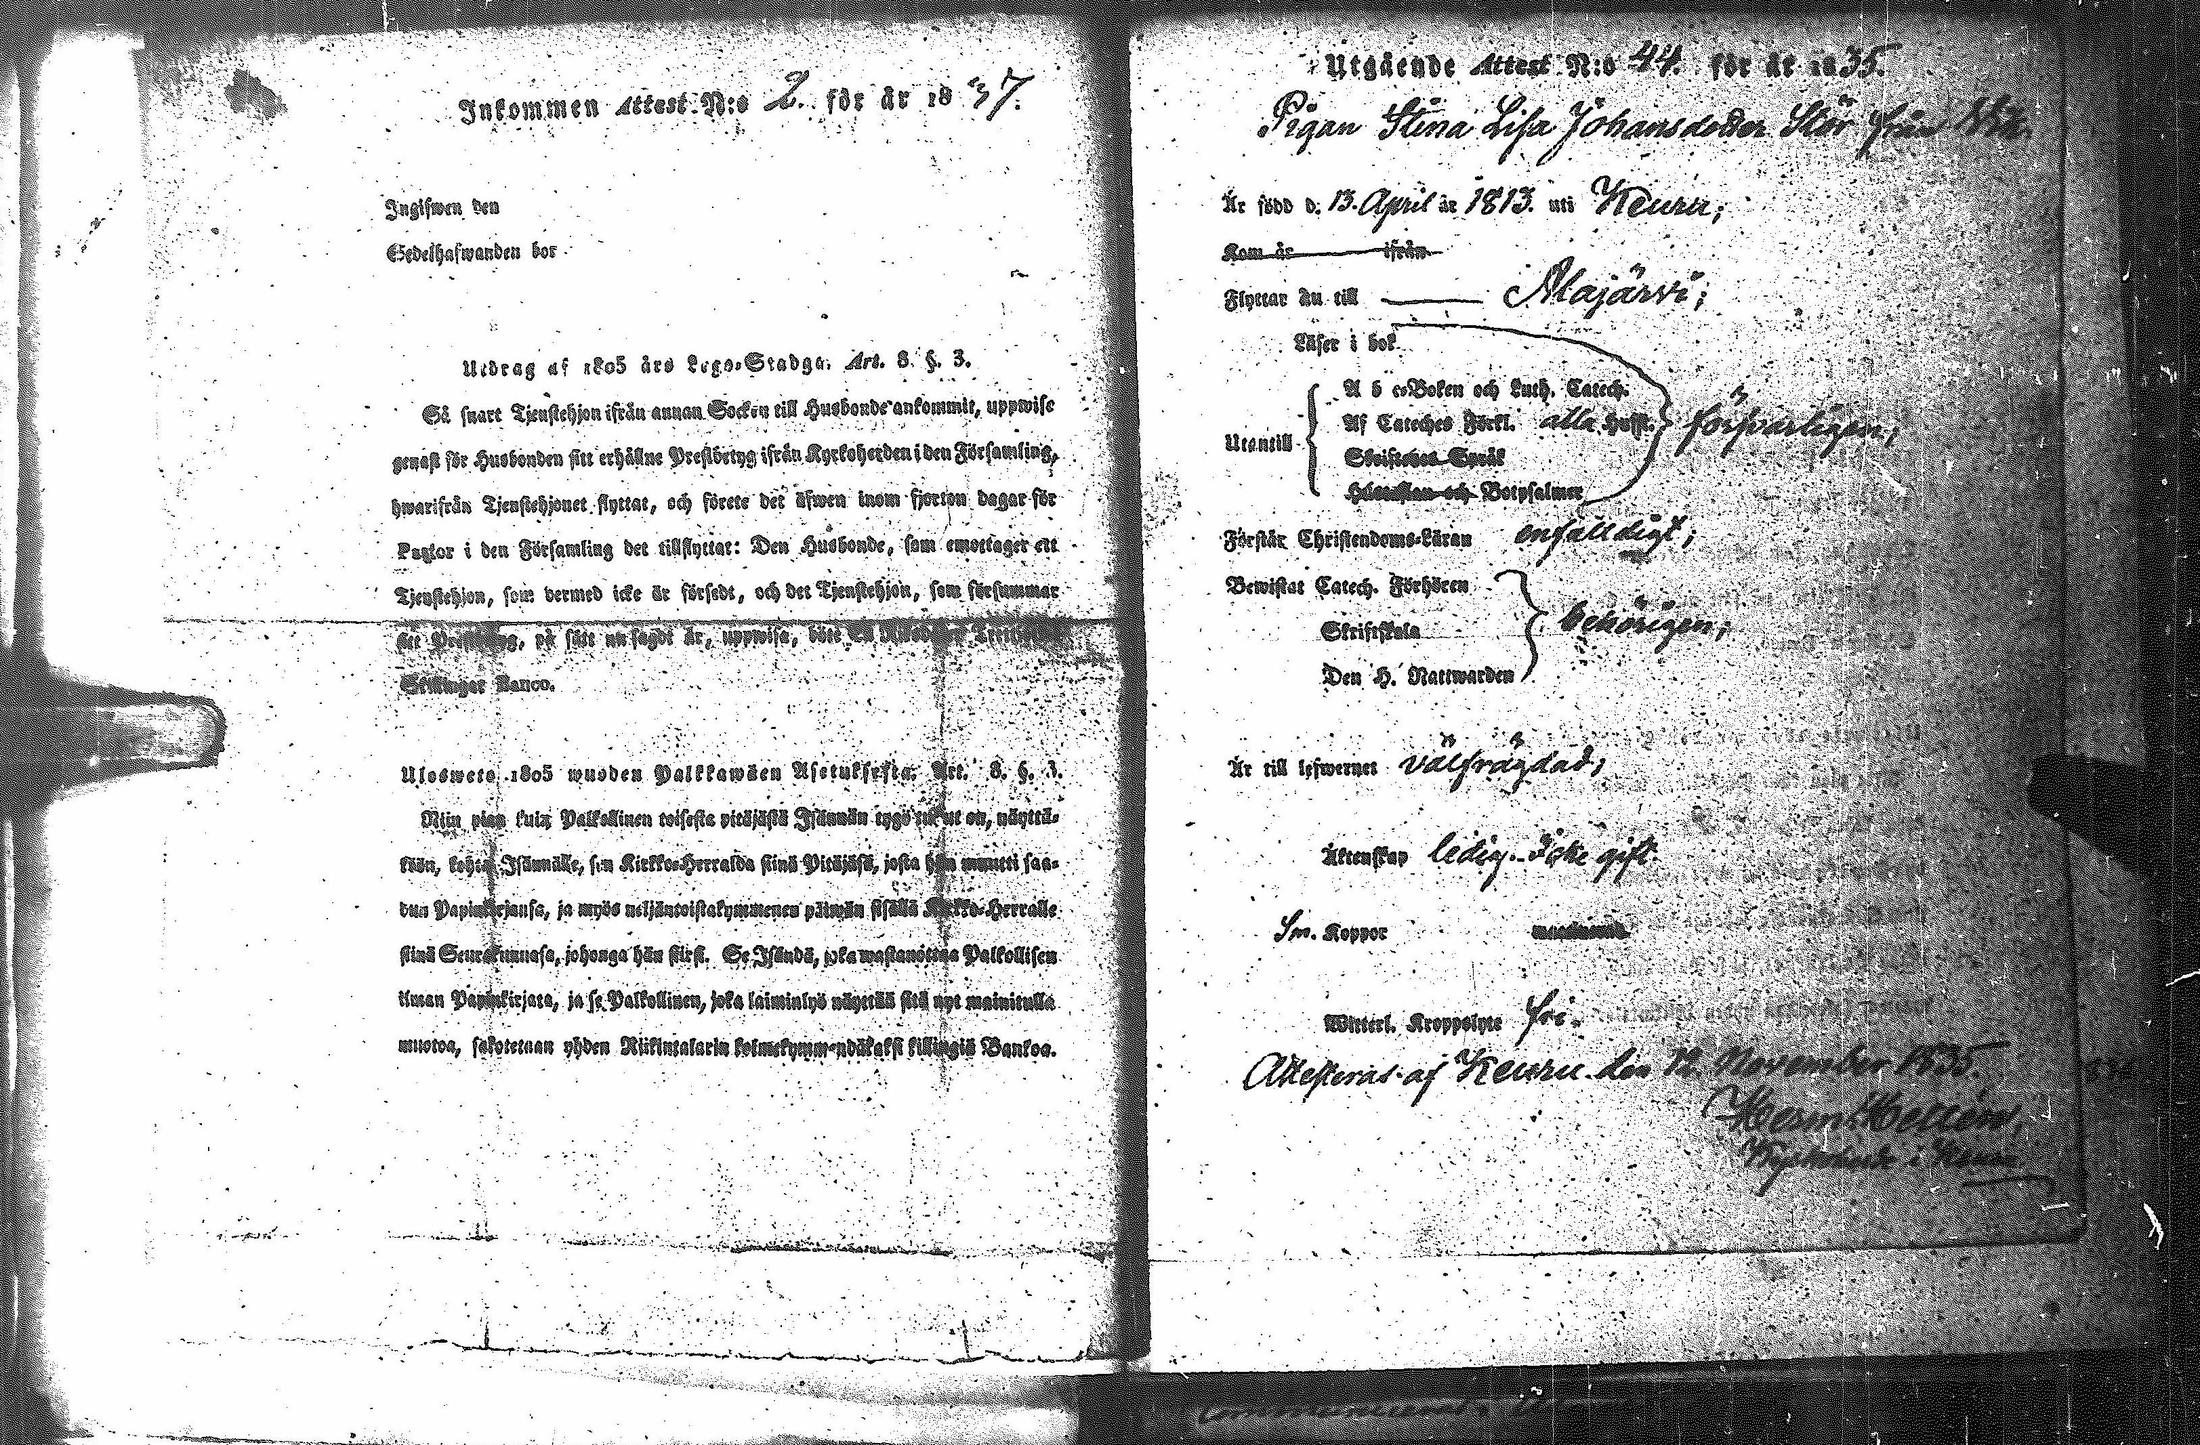 Inkommen Attest N:o 2. för år 1837.
Ingifwen den
Sedelhafwanden bor
Utdrag af 1805 års Lego-Stadga. Art. 8. §. 3.
Så snart Tjenstehjon ifrån annan Socken till Husbonde ankommit, uppwise
genast för Husbonden sitt erhållne Prestbetyg ifrån Kyrkoherden i den Församling,
hwarifrån Tjenstehjonet flyttat, och förete det äfwen inom fjorton dagar för
Pastor i den Församling det tillflyttat: Den Husbonde, som emottager ett
Tjenstehjon, som dermed icke är försedt, och det Tjenstehjon, som försummar
det Prestbetyg, på sätt nu sagdt är, uppwisa, böte en Riksdaler
Skillingar Banco.
Uloswето 1805 wuoden Palkkawäen Asetuksesta. Art. 8. §. 3.
Niin pian kuin Palkollinen toisesta pitäjästä Isännän tygö tullut on, näyttä-
kään, kohta Isännälle, sen Kirkko-Herralda siinä Pitäjäsä, josta hän muutti saa-
dun Papinkirjansa, ja myös neljäntoistakymmenen päiwän sisällä Kirkko-Herralle
siinä Seurakunnasa, johonga hän siirsi. Se Isändä, joka wastanottaa Palkollisen
ilman Papinkirjata, ja se Palkollinen, joka laiminlyö näyttää sitä nyt mainitulla
muotoa, sakotetaan yhden Riikintalarin kolmekymmendäkaksi killingiä Bankoa.
Utgående Attest N:o 44. för år 1835.
Pigan Stina Lisa Johansdotter Stör från
Är född d. 13. April år 1813. uti Keuru;
Kom år ifrån
Flyttar nu till Alajärvi;
Läser i bok
Utantill
A b c-Boken och Luth. Catech.
Af Cateches Förkl. alla Hufst.
försvarligen;
Skriftenes Språk
Hustaflan och Botpsalmer
Förstår Christendoms-Läran enfaldigt;
Bewistat Catech. Förhören
Skriftskola
behörigen;
Den H. Nattwarden
Är till lefwernet välfrägdad;
Äktenskap ledig. Icke gift.
Sm. Koppor
Witterl. Kroppslyte fri.
Attesteras af Keuru den 12. November 1835.
Herm: Hellén,
Kyrkoherde i Keuru